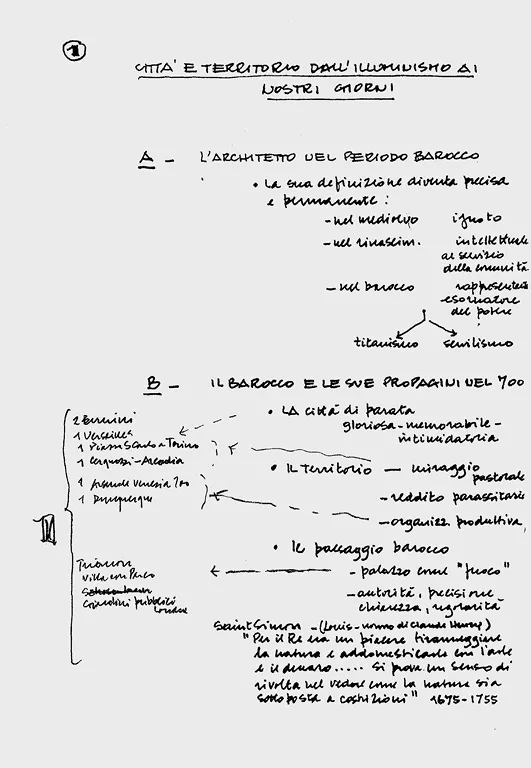 1
CITTA' E TERRITORIO DALL'ILLUMINISMO AI
NOSTRI GIORNI
A - L'ARCHITETTO NEL PERIODO BAROCCO
• La sua definizione diventa precisa
e permanente :
- nel medioevo ignoto
- nel rinascim. intellettuale
al servizio
della comunità
- nel barocco rappresentante
esornatore
del potere
titanismo servilismo
B - IL BAROCCO E LE SUE PROPAGINI NEL 700
• LA città di parata
gloriosa - memorabile -
intimidatoria
2 Bernini
1 Versailles
1 Piazza S Carlo a Torino
1 Cerquozzi - Arcadia
1 Arsenale Venezia 700
1 Dunquerque
II
• IL Territorio — miraggio
pastorale
- reddito parassitario
- organizz. produttiva
• Il paesaggio barocco
- palazzo come "fuoco"
- autorità, precisione
chiarezza, regolarità
Trianon
Villa con Parco
Giardini pubblici
Londra
Saint Simon - (Louis - nonno di Claude Henry)
"Per il Re era un piacere tiranneggiare
la natura e addomesticarla con l'arte
e il denaro ..... Si prova un senso di
rivolta nel vedere come la natura sia
sottoposta a costrizioni" 1675-1755